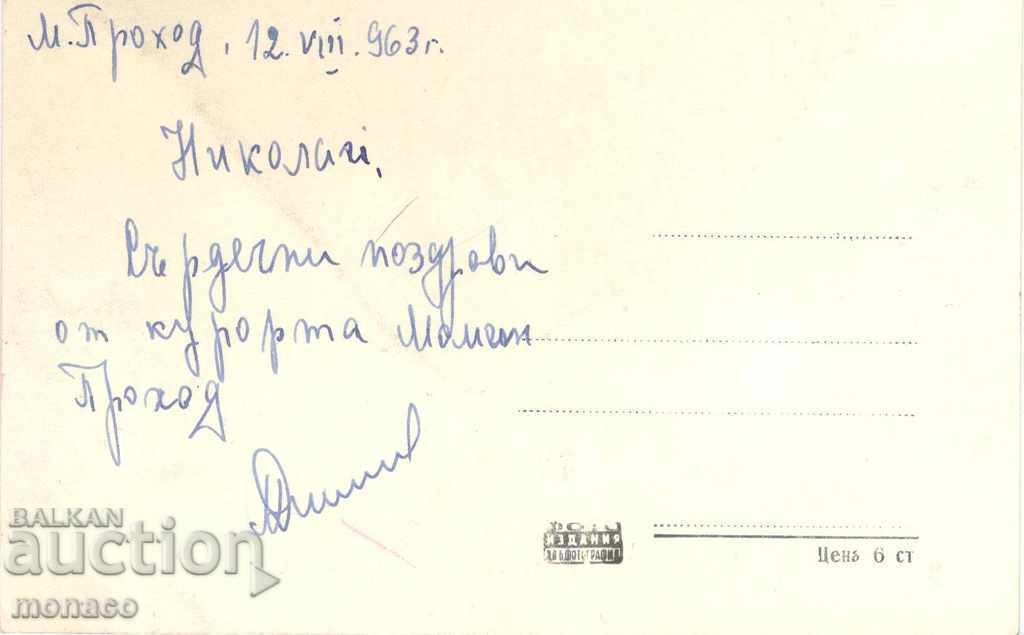 М. Проход, 12.VIII.963 г.
Николай,
Сърдечни поздрави
от курорта Момин
Проход
BALKAN
auction
monaco
ФОТО
ИЗДАНИЯ
Цена 6 ст